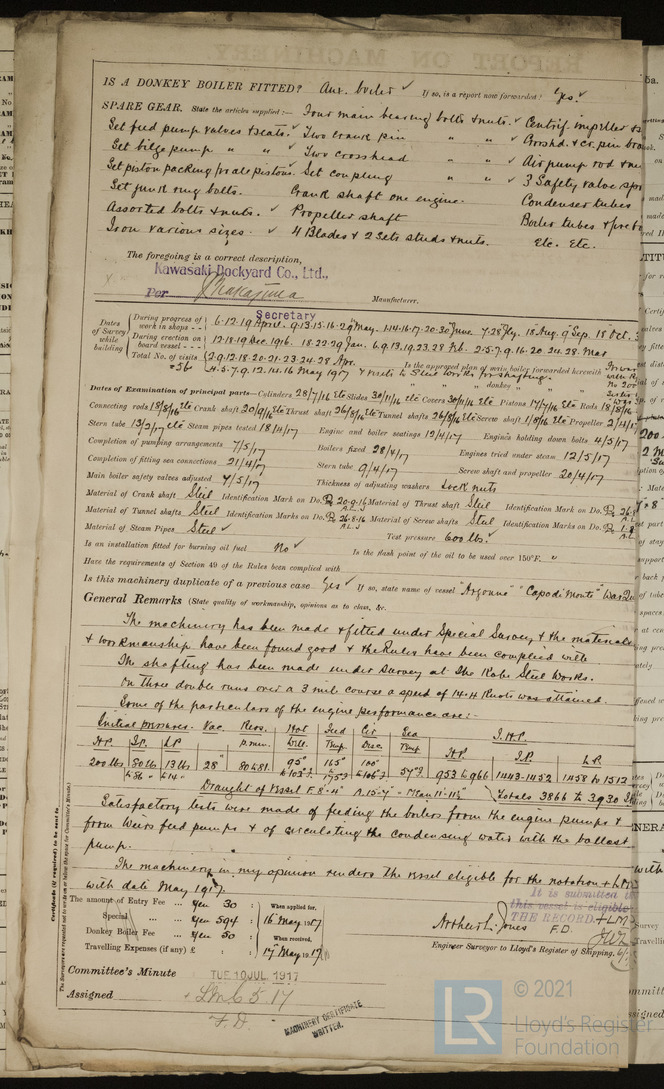 IS A DONKEY BOILER FITTED? Aux. boiler ✓ If so, is a report now forwarded? Yes. ✓
SPARE GEAR. State the articles supplied:— Four main bearing bolts & nuts. ✓ Centrif. impeller &
Set feed pump valves & seats. ✓ Two crank pin " " ✓ Crosshd. & cr. pin
Set bilge pump " " ✓ Two crosshead " " ✓ Air pump rod &
Set piston packing Set coupling " " ✓ 3 Safety valve
Set junk ring bolts. Crank shaft one engine. Condenser tubes
Assorted bolts & nuts. ✓ Propeller shaft Boiler tubes &
Iron various sizes. ✓ 4 Blades & 2 Sets studs & nuts. Etc. Etc.
The foregoing is a correct description,
Kawasaki Dockyard Co., Ltd.,
Per Manufacturer.
Secretary
Dates of Survey while building
During progress of work in shops -- 6.12.19 April. 9.13.15.16.29 May. 1.14.16.17.20.30 June 7.28 Jly. 18 Aug. 9 Sep. 18 Oct.
During erection on board vessel -- 12.18.19 Dec. 1916. 18.22.29 Jan. 6.9.13.19.23.28 Feb. 2.5.7.9.16.20.24.28. Mar
Total No. of visits 2.9.12.18.20.21.23.24.28 Apr.
= 56 4.5.7.9.12.14.16 May 1917 & visits to Steel Works for shafting.
Is the approved plan of main boiler forwarded herewith
" " " donkey " " "
Dates of Examination of principal parts—Cylinders 28/7/16 etc Slides 30/11/16 etc Covers 30/11/16 etc Pistons 17/7/16 etc Rods 18/8/16
Connecting rods 18/8/16 etc Crank shaft 20/9/16 etc Thrust shaft 26/8/16 etc Tunnel shafts 26/8/16 etc Screw shaft 1/8/16 etc Propeller 2/4/17
Stern tube 13/2/17 etc Steam pipes tested 18/4/17 Engine and boiler seatings 12/4/17 Engines holding down bolts 4/5/17
Completion of pumping arrangements 7/5/17 Boilers fixed 28/4/17 Engines tried under steam 12/5/17
Completion of fitting sea connections 21/4/17 Stern tube 9/4/17 Screw shaft and propeller 20/4/17
Main boiler safety valves adjusted 7/5/17 Thickness of adjusting washers Lock nuts
Material of Crank shaft Steel Identification Mark on Do. 20.9.16 A.L.J Material of Thrust shaft Steel Identification Mark on Do. 26.8
Material of Tunnel shafts Steel Identification Marks on Do. 26.8.16 A.L.J Material of Screw shafts Steel Identification Marks on Do. 1.8
Material of Steam Pipes Steel ✓ Test pressure 600 lbs. ✓
Is an installation fitted for burning oil fuel No ✓ Is the flash point of the oil to be used over 150°F. "
Have the requirements of Section 49 of the Rules been complied with
Is this machinery duplicate of a previous case Yes ✓ If so, state name of vessel "Argonne" "Capodimonte"
General Remarks (State quality of workmanship, opinions as to class, &c.
The machinery has been made & fitted under Special Survey & the materials
& workmanship have been found good & the Rules have been complied with.
The shafting has been made under survey at the Kobe Steel Works.
On three double runs over a 3 mile course a speed of 14.4 Knots was attained.
Some of the particulars of the engine performance are:—
Initial pressures. Vac. Revs. Hot Feed Cir Sea I.H.P.
H.P. I.P. L.P. p.min. Well. Temp. Disc. Temp H.P. I.P. L.P.
200 lbs 80 lbs 13 lbs 28" 80 & 81. 95° 165° 100° 57°F 953 to 966 1443-1452 1458 to 1512
to 86" to 14" to 103°F to 175°F to 106°F
Draught of Vessel F. 8'-4" A. 15'-7" = Mean 11'-11½" Totals 3866 to 3930
Satisfactory tests were made of feeding the boilers from the engine pumps &
from Weirs feed pumps & of circulating the condensing water with the ballast
pump.
The machinery in my opinion renders the vessel eligible for the notation + LMC
with date May 1917.
Certificate (if required) to be sent to
The Surveyors are requested not to write on or below the space for Committee's Minute.
The amount of Entry Fee ... Yen 30 : When applied for,
Special ... Yen 594 : 16 May 1917
Donkey Boiler Fee ... Yen 50 : When received,
Travelling Expenses (if any) £ : 17 May 1917
It is submitted
this vessel is eligible
THE RECORD. + LM
F.D.
Arthur L. Jones
Engineer Surveyor to Lloyd's Register of Shipping.
Committee's Minute TUE 10 JUL. 1917
Assigned + LMC 5.17
F.D.
MACHINERY CERTIFICATE
WRITTEN.
© 2021
Lloyd's Register
Foundation